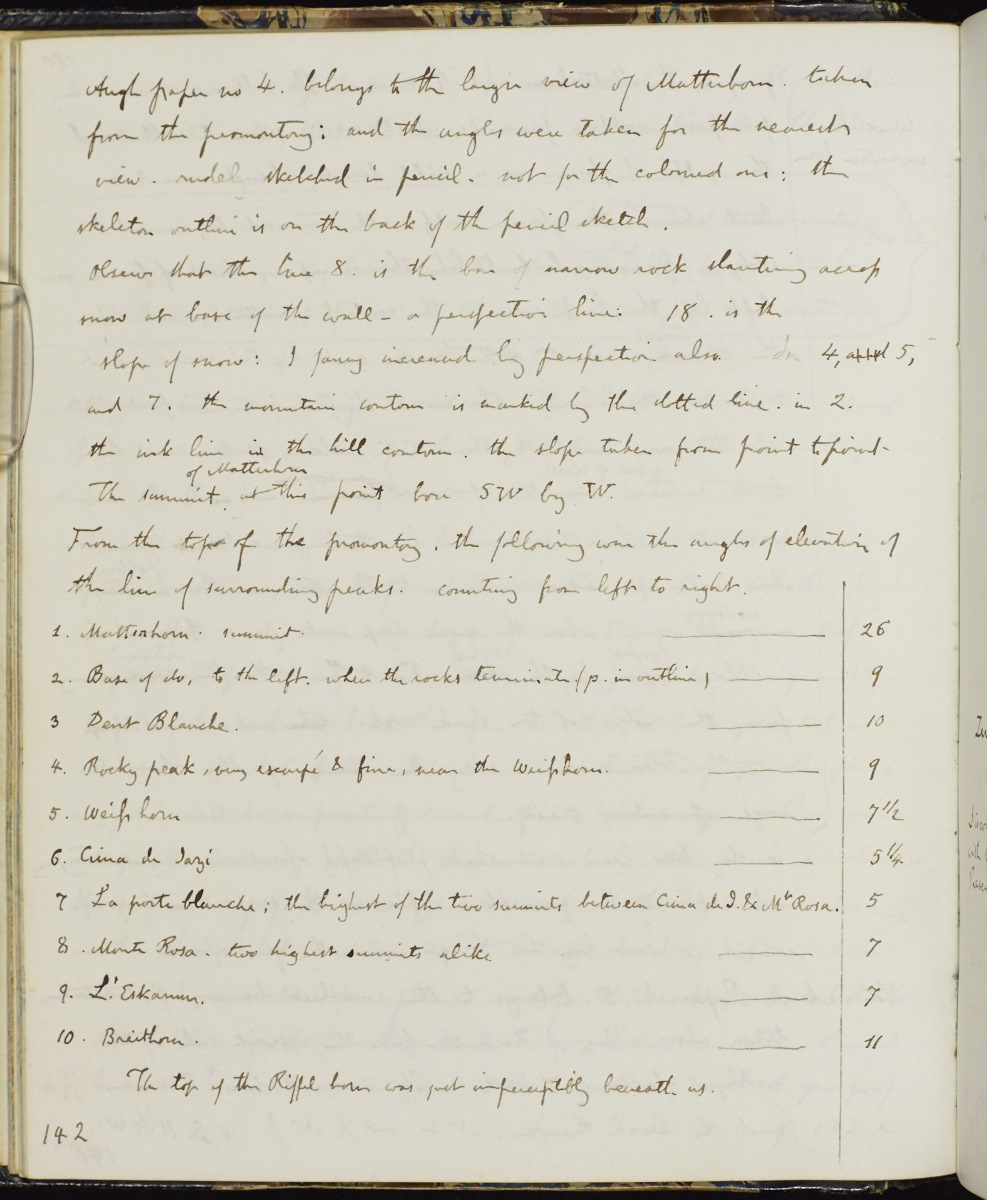 Angle paper no 4. belongs to the larger view of Matterhorn. taken
from the promontory; and the angles were taken for the nearest
view. rudely sketched in pencil. not for the coloured one: the
skeleton outline is on the back of the pencil sketch.
Observe that the line 8. is the base of narrow rock slanting across
snow at base of the wall - a perspective line. 18. is the
slope of snow: I fancy increased by perspective also. In 4, and 5,
and 7. the mountain contour is marked by the dotted line. in 2.
the ink line is the hill contour. the slope taken from point to point.
of Matterhorn
The summit at this point bore SW by W.
From the top of the promontory. the following were the angles of elevation of
the line of surrounding peaks. counting from left to right.
1. Matterhorn. summit. 26
2. Base of do, to the left. where the rocks terminate (p. in outline) 9
3 Dent Blanche. 10
4. Rocky peak, very escarpé & fine, near the Weisshorn. 9
5. Weiss horn 7 1/2
6. Cima de Jazi 5 1/4
7 La porte blanche; the highest of the two summits between Cima de J. & Mte Rosa. 5
8. Monte Rosa. two highest summits alike 7
9. L'Eskamm. 7
10. Breithorn. 11
The top of the Riffel horn was just imperceptibly beneath us.
142